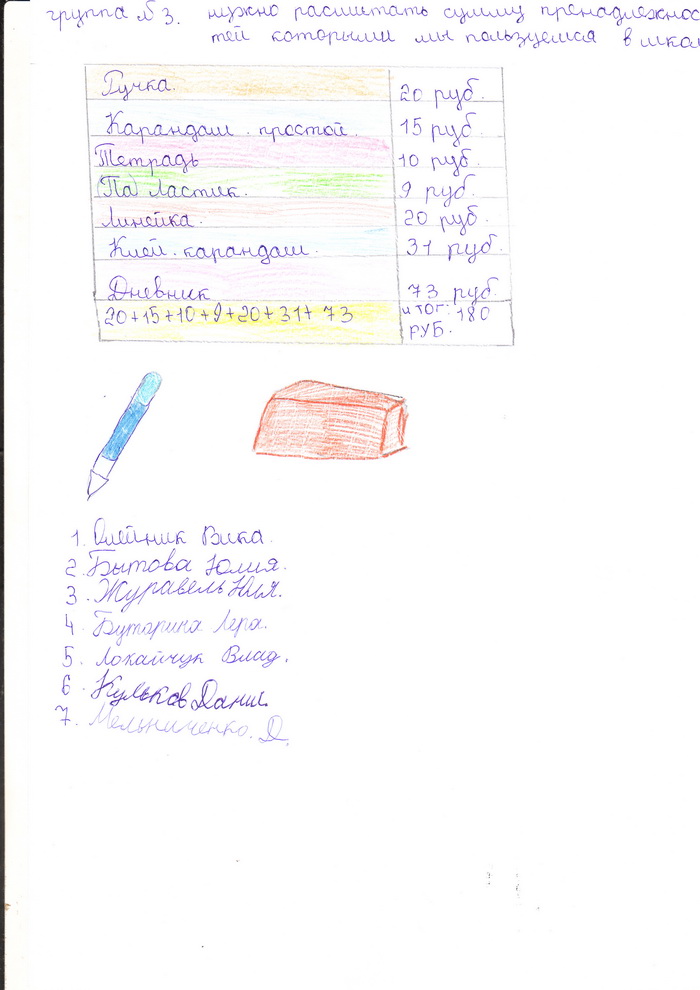 группа №3. нужно расшитать сумму пренадлежнос
тей которыми мы пользуемся в школ
Ручка. 20 руб.
Карандаш простой. 15 руб.
Тетрадь 10 руб.
Па ластик. 9 руб.
Линейка. 20 руб.
Клей. карандаш. 31 руб.
Дневник 73 руб
20+15+10+9+20+31+73 итог. 180
РУБ.
1. Олейник Вика.
2. Бытова Юлия.
3. Журавель Юля.
4. Буторина Лера.
5. Локайчук Влад.
6. Кульков Данил.
7. Мельниченко. Д.